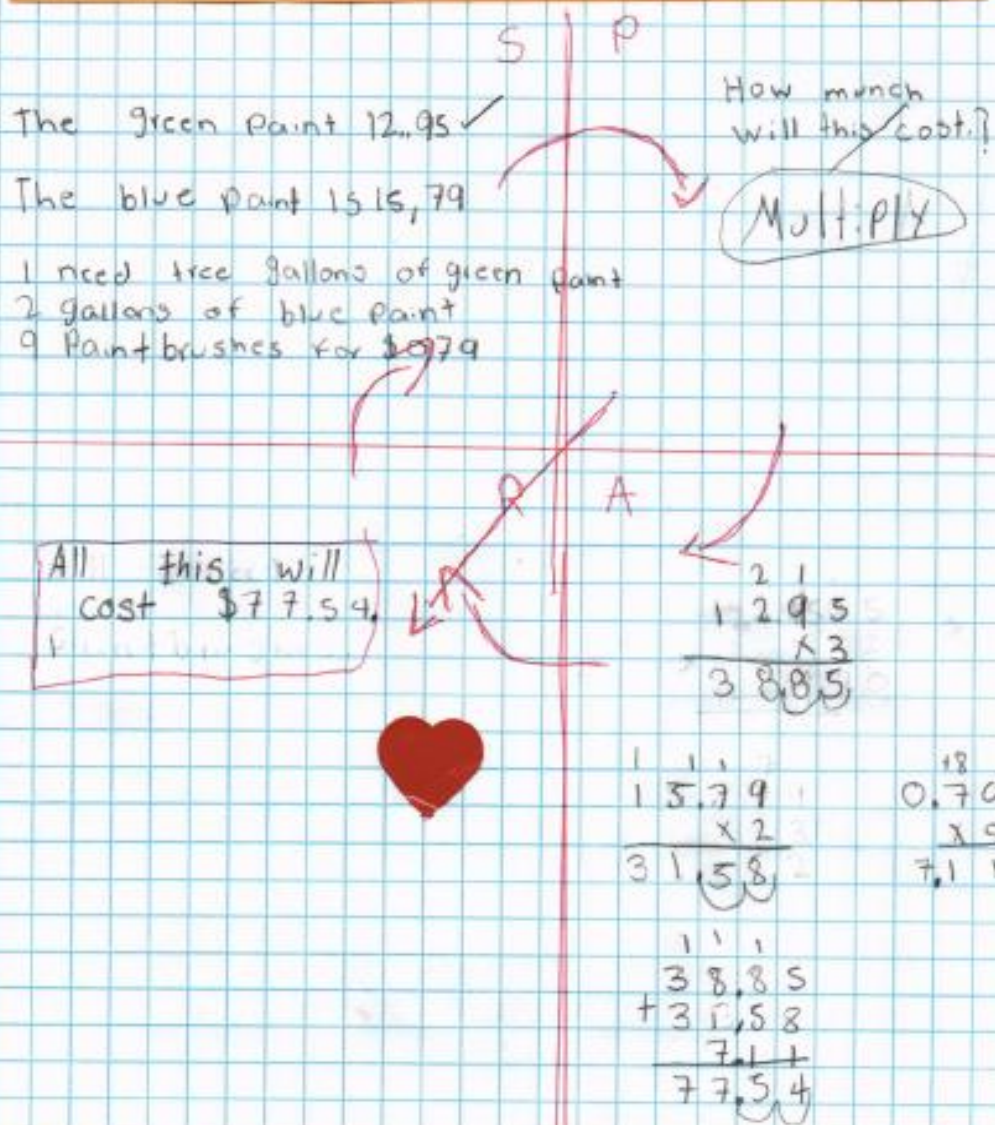 S
P
The green Paint 12.95 ✓
The blue Paint is 15,79
I need tree gallons of green Paint
2 gallons of blue Paint
9 Paintbrushes for $0.79
How munch
will this cost.?
Multiply
R
A
All this will
cost $77.54.
2 1
1 2 9 5
x 3
3 8.8 5
1 1 1
1 5.7 9
x 2
3 1.5 8
+8
0.79
x 9
7.1 1
1 1 1
3 8.8 5
+ 3 1,5 8
7.1 1
7 7.5 4